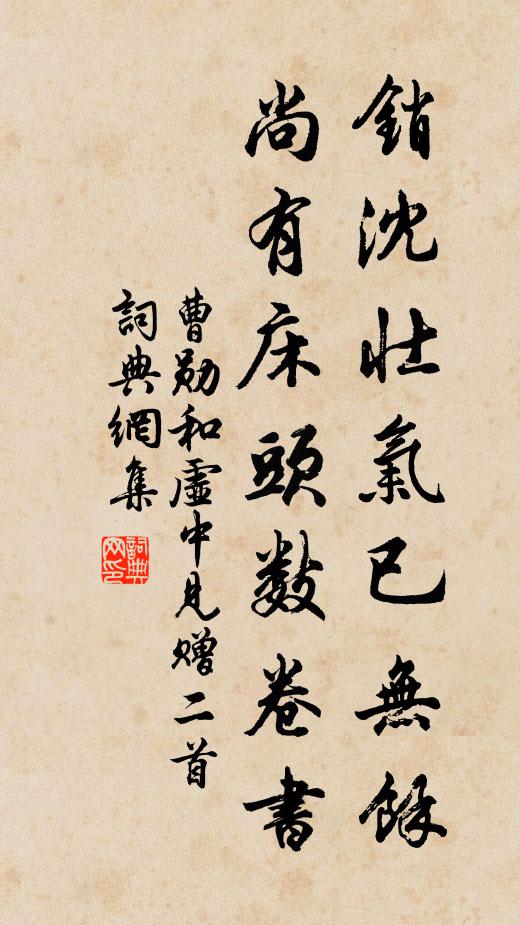 銷沈壯氣已無餘
尚有床頭數卷書
曹勛和虛中見贈二首
詞典網集
詞典网印